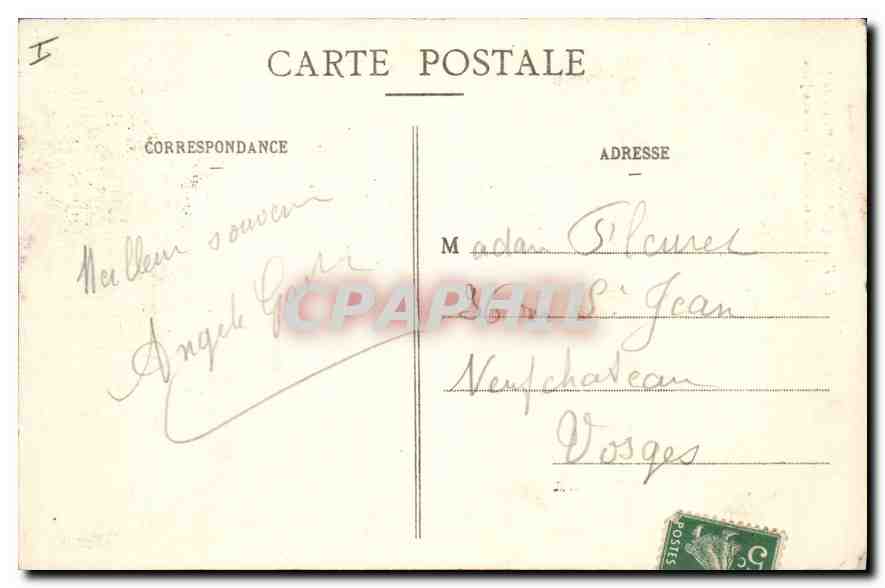 I
CARTE POSTALE
CORRESPONDANCE
Meilleur souvenir
Angèle
ADRESSE
Madam Fleuret
26 St Jean
Neufchateau
Vosges
CPAPHIL
POSTES
5c